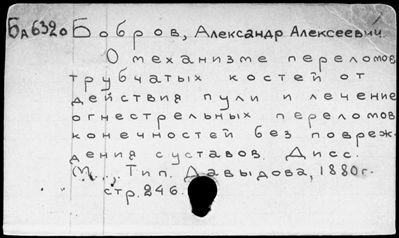 Бд6320 Бобров, Александр Алексеевич.
О механизме переломов
трубчатых костей от
действия пули и лечение
огнестрельных переломов
конечностей без повреж-
дения суставов. Дисс.
М.,. Тип. Давыдова, 1880г.
стр. 246.